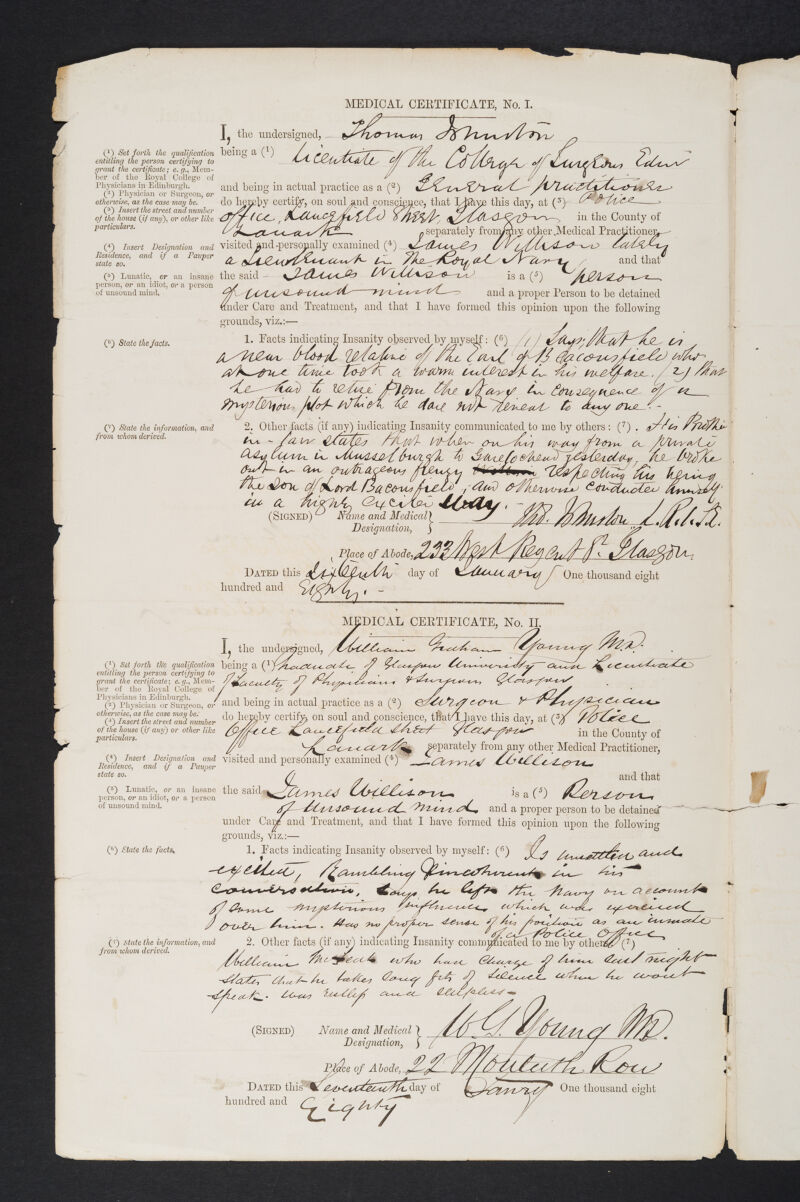 MEDICAL CERTIFICATE, No. I.
I, the undersigned, Thomas Johnston
(¹) Set forth the qualification
entitling the person certifying to
grant the certificate; e. g., Mem-
ber of the Royal College of
Physicians in Edinburgh.
(²) Physician or Surgeon, or
otherwise, as the case may be.
(³) Insert the street and number
of the house (if any), or other like
particulars.
being a (¹) Licentiate of the College of Surgeons Edin
and being in actual practice as a (²) General practitioner
do hereby certify, on soul and conscience, that I have this day, at (³) Police
Office, Lancefield Street, Glasgow in the County of
Lanark separately from any other Medical Practitioner,
(⁴) Insert Designation and
Residence, and if a Pauper
state so.
visited and personally examined (⁴) James Willison lately
a Lieutenant in the Royal Navy and that
(⁵) Lunatic, or an insane
person, or an idiot, or a person
of unsound mind.
the said James Willison is a (⁵) person
of unsound mind and a proper Person to be detained
under Care and Treatment, and that I have formed this opinion upon the following
grounds, viz.:—
(⁶) State the facts.
1. Facts indicating Insanity observed by myself: (⁶) (1) Says that he is
a near blood relative of the Earl of Beaconsfield who
at one time took a warm interest in his welfare. (2) that
he had to retire from the Navy in consequence of a
mysterious plot which he dare not reveal to any one.-
(⁷) State the information, and
from whom derived.
2. Other facts (if any) indicating Insanity communicated to me by others: (⁷). His Brother
in-law states that when on his way from a private
asylum in Musselburgh to Garelochead yesterday, he broke
out in an outrageous frenzy respecting his being
the son of Lord Baconsfield, and otherwise conducted himself
in a highly excited way.-
(SIGNED) Name and Medical Designation, Tho. Johnston L.R.C.S.E.
Place of Abode, 232 West Regent St. Glasgow
DATED this Sixteenth day of January One thousand eight
hundred and Eighty.-
MEDICAL CERTIFICATE, No. II.
I, the undersigned, William Graham Young M.D.
(¹) Set forth the qualification
entitling the person certifying to
grant the certificate; e. g., Mem-
ber of the Royal College of
Physicians in Edinburgh.
(²) Physician or Surgeon, or
otherwise, as the case may be.
(³) Insert the street and number
of the house (if any) or other like
particulars.
being a (¹) Graduate of Glasgow University and Licentiate
of Faculty of Physicians & Surgeons Glasgow
and being in actual practice as a (²) Surgeon & Physician
do hereby certify, on soul and conscience, that I have this day, at (³) Police
Office Lancefield Street Glasgow in the County of
Lanark separately from any other Medical Practitioner,
(⁴) Insert Designation and
Residence, and if a Pauper
state so.
visited and personally examined (⁴) James Willison
and that
(⁵) Lunatic, or an insane
person, or an idiot, or a person
of unsound mind.
the said James Willison is a (⁵) Person
of Unsound mind and a proper person to be detained
under Care and Treatment, and that I have formed this opinion upon the following
grounds, viz.:—
(⁶) State the facts.
1. Facts indicating Insanity observed by myself: (⁶) Is unsettled and
excited, Rambling & incoherent in his
conversation. Says he left the Navy on account
of some mysterious influence which was exercised
over him. Has no proper sense of his position as an inmate
of a Police Office
(⁷) State the information, and
from whom derived.
2. Other facts (if any) indicating Insanity communicated to me by others (⁷)
William who had charge of him last night
States that he takes long fits of silence when he wont
speak. was restless and sleepless
(SIGNED) Name and Medical Designation, W. G. Young MD.
Place of Abode, 22 Monteith Row
DATED this Seventeenth day of Janry One thousand eight
hundred and Eighty